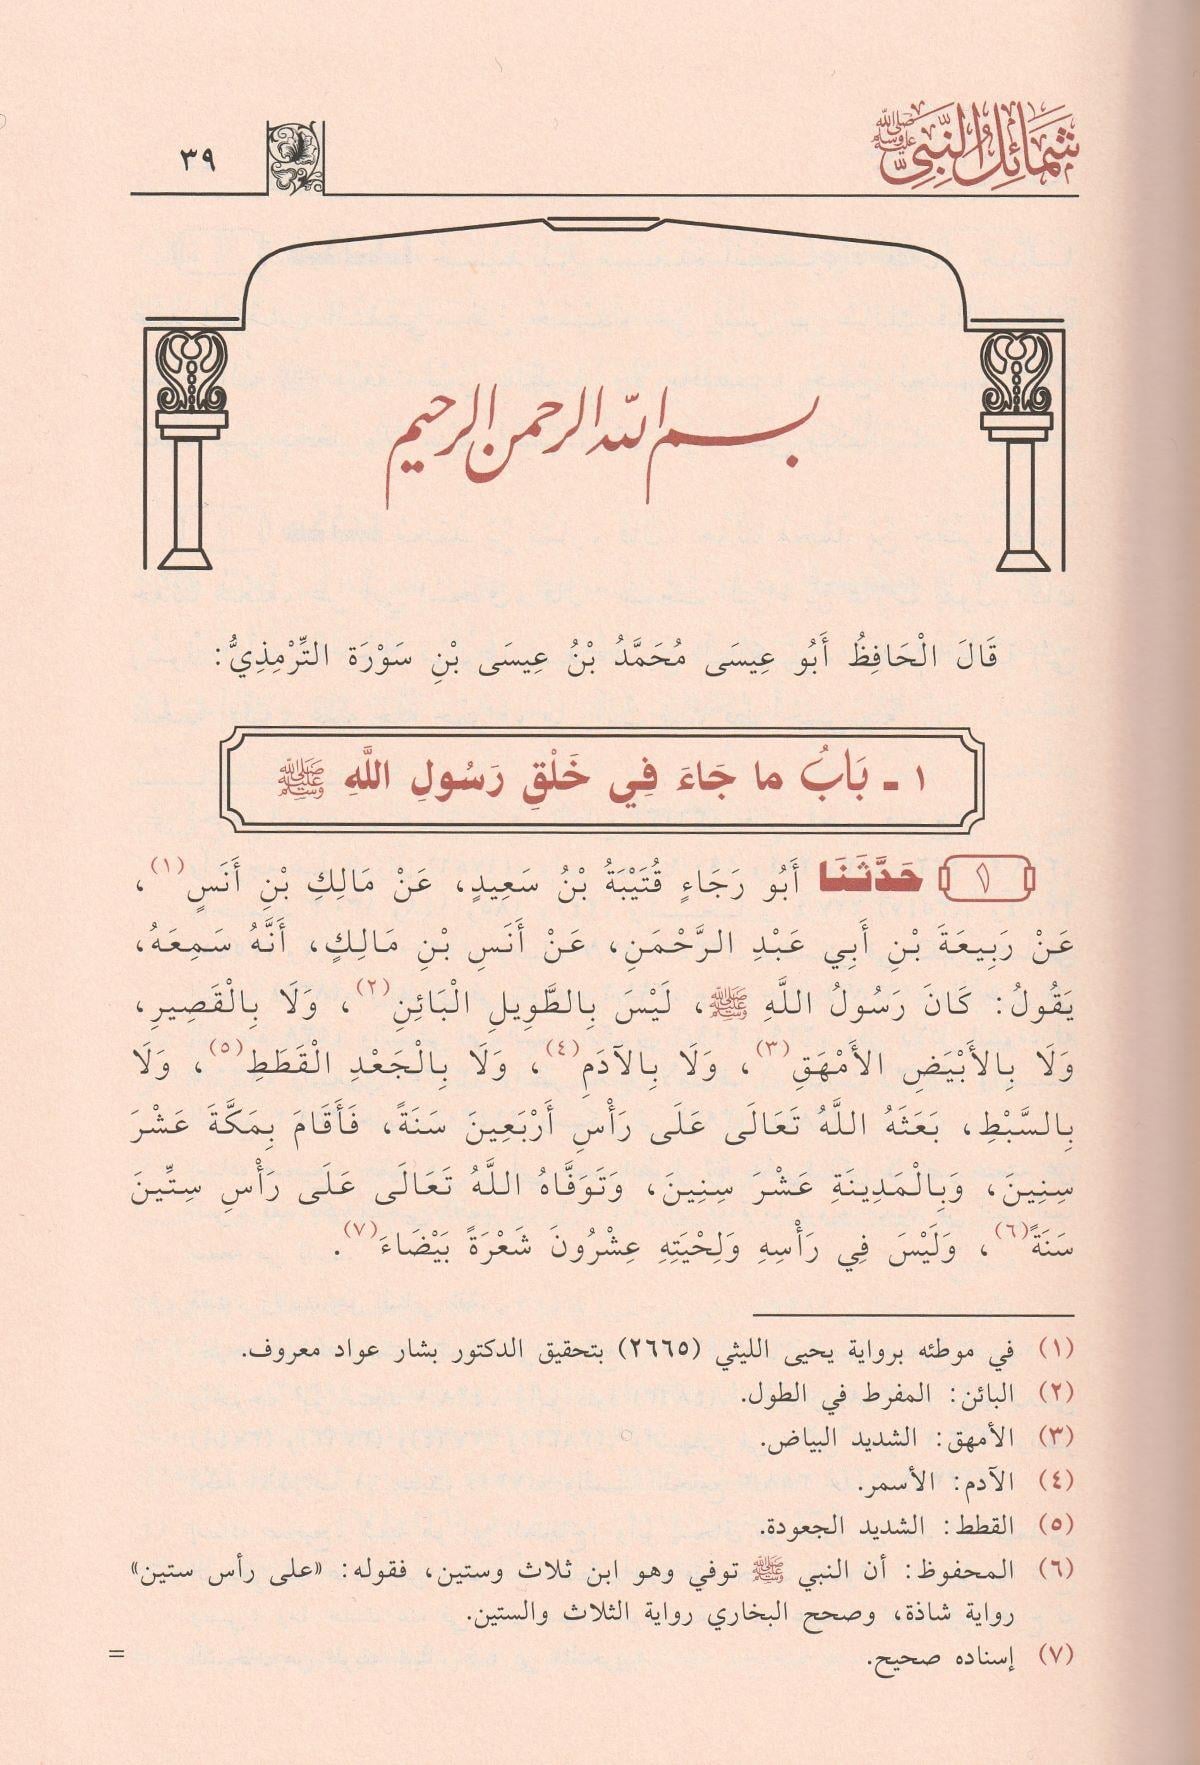 شمائل النبي ﷺ
٣٩
بسم الله الرحمن الرحيم
قَالَ الْحَافِظُ أَبُو عِيسَى مُحَمَّدُ بْنُ عِيسَى بْنِ سَوْرَة التِّرْمِذِيُّ:
١ - بَابُ ما جَاءَ فِي خَلْقِ رَسُولِ اللَّهِ ﷺ
١ حَدَّثَنَا أَبُو رَجَاءٍ قُتَيْبَةُ بْنُ سَعِيدٍ، عَنْ مَالِكِ بْنِ أَنَسٍ(١)،
عَنْ رَبِيعَةَ بْنِ أَبِي عَبْدِ الرَّحْمَنِ، عَنْ أَنَسِ بْنِ مَالِكٍ، أَنَّهُ سَمِعَهُ،
يَقُولُ: كَانَ رَسُولُ اللَّهِ ﷺ، لَيْسَ بِالطَّوِيلِ الْبَائِنِ(٢)، وَلَا بِالْقَصِيرِ،
وَلَا بِالأَبْيَضِ الأَمْهَقِ(٣)، وَلَا بِالآدَمِ(٤)، وَلَا بِالْجَعْدِ الْقَطَطِ(٥)، وَلَا
بِالسَّبْطِ، بَعَثَهُ اللَّهُ تَعَالَى عَلَى رَأْسِ أَرْبَعِينَ سَنَةً، فَأَقَامَ بِمَكَّةَ عَشْرَ
سِنِينَ، وَبِالْمَدِينَةِ عَشْرَ سِنِينَ، وَتَوَفَّاهُ اللَّهُ تَعَالَى عَلَى رَأْسِ سِتِّينَ
سَنَةً(٦)، وَلَيْسَ فِي رَأْسِهِ وَلِحْيَتِهِ عِشْرُونَ شَعْرَةً بَيْضَاءَ(٧).
(١) في موطئه برواية يحيى الليثي (٢٦٦٥) بتحقيق الدكتور بشار عواد معروف.
(٢) البائن: المفرط في الطول.
(٣) الأمهق: الشديد البياض.
(٤) الآدم: الأسمر.
(٥) القطط: الشديد الجعودة.
(٦) المحفوظ: أن النبي ﷺ توفي وهو ابن ثلاث وستين، فقوله: «على رأس ستين»
رواية شاذة، وصحح البخاري رواية الثلاث والستين.
(٧) إسناده صحيح. =